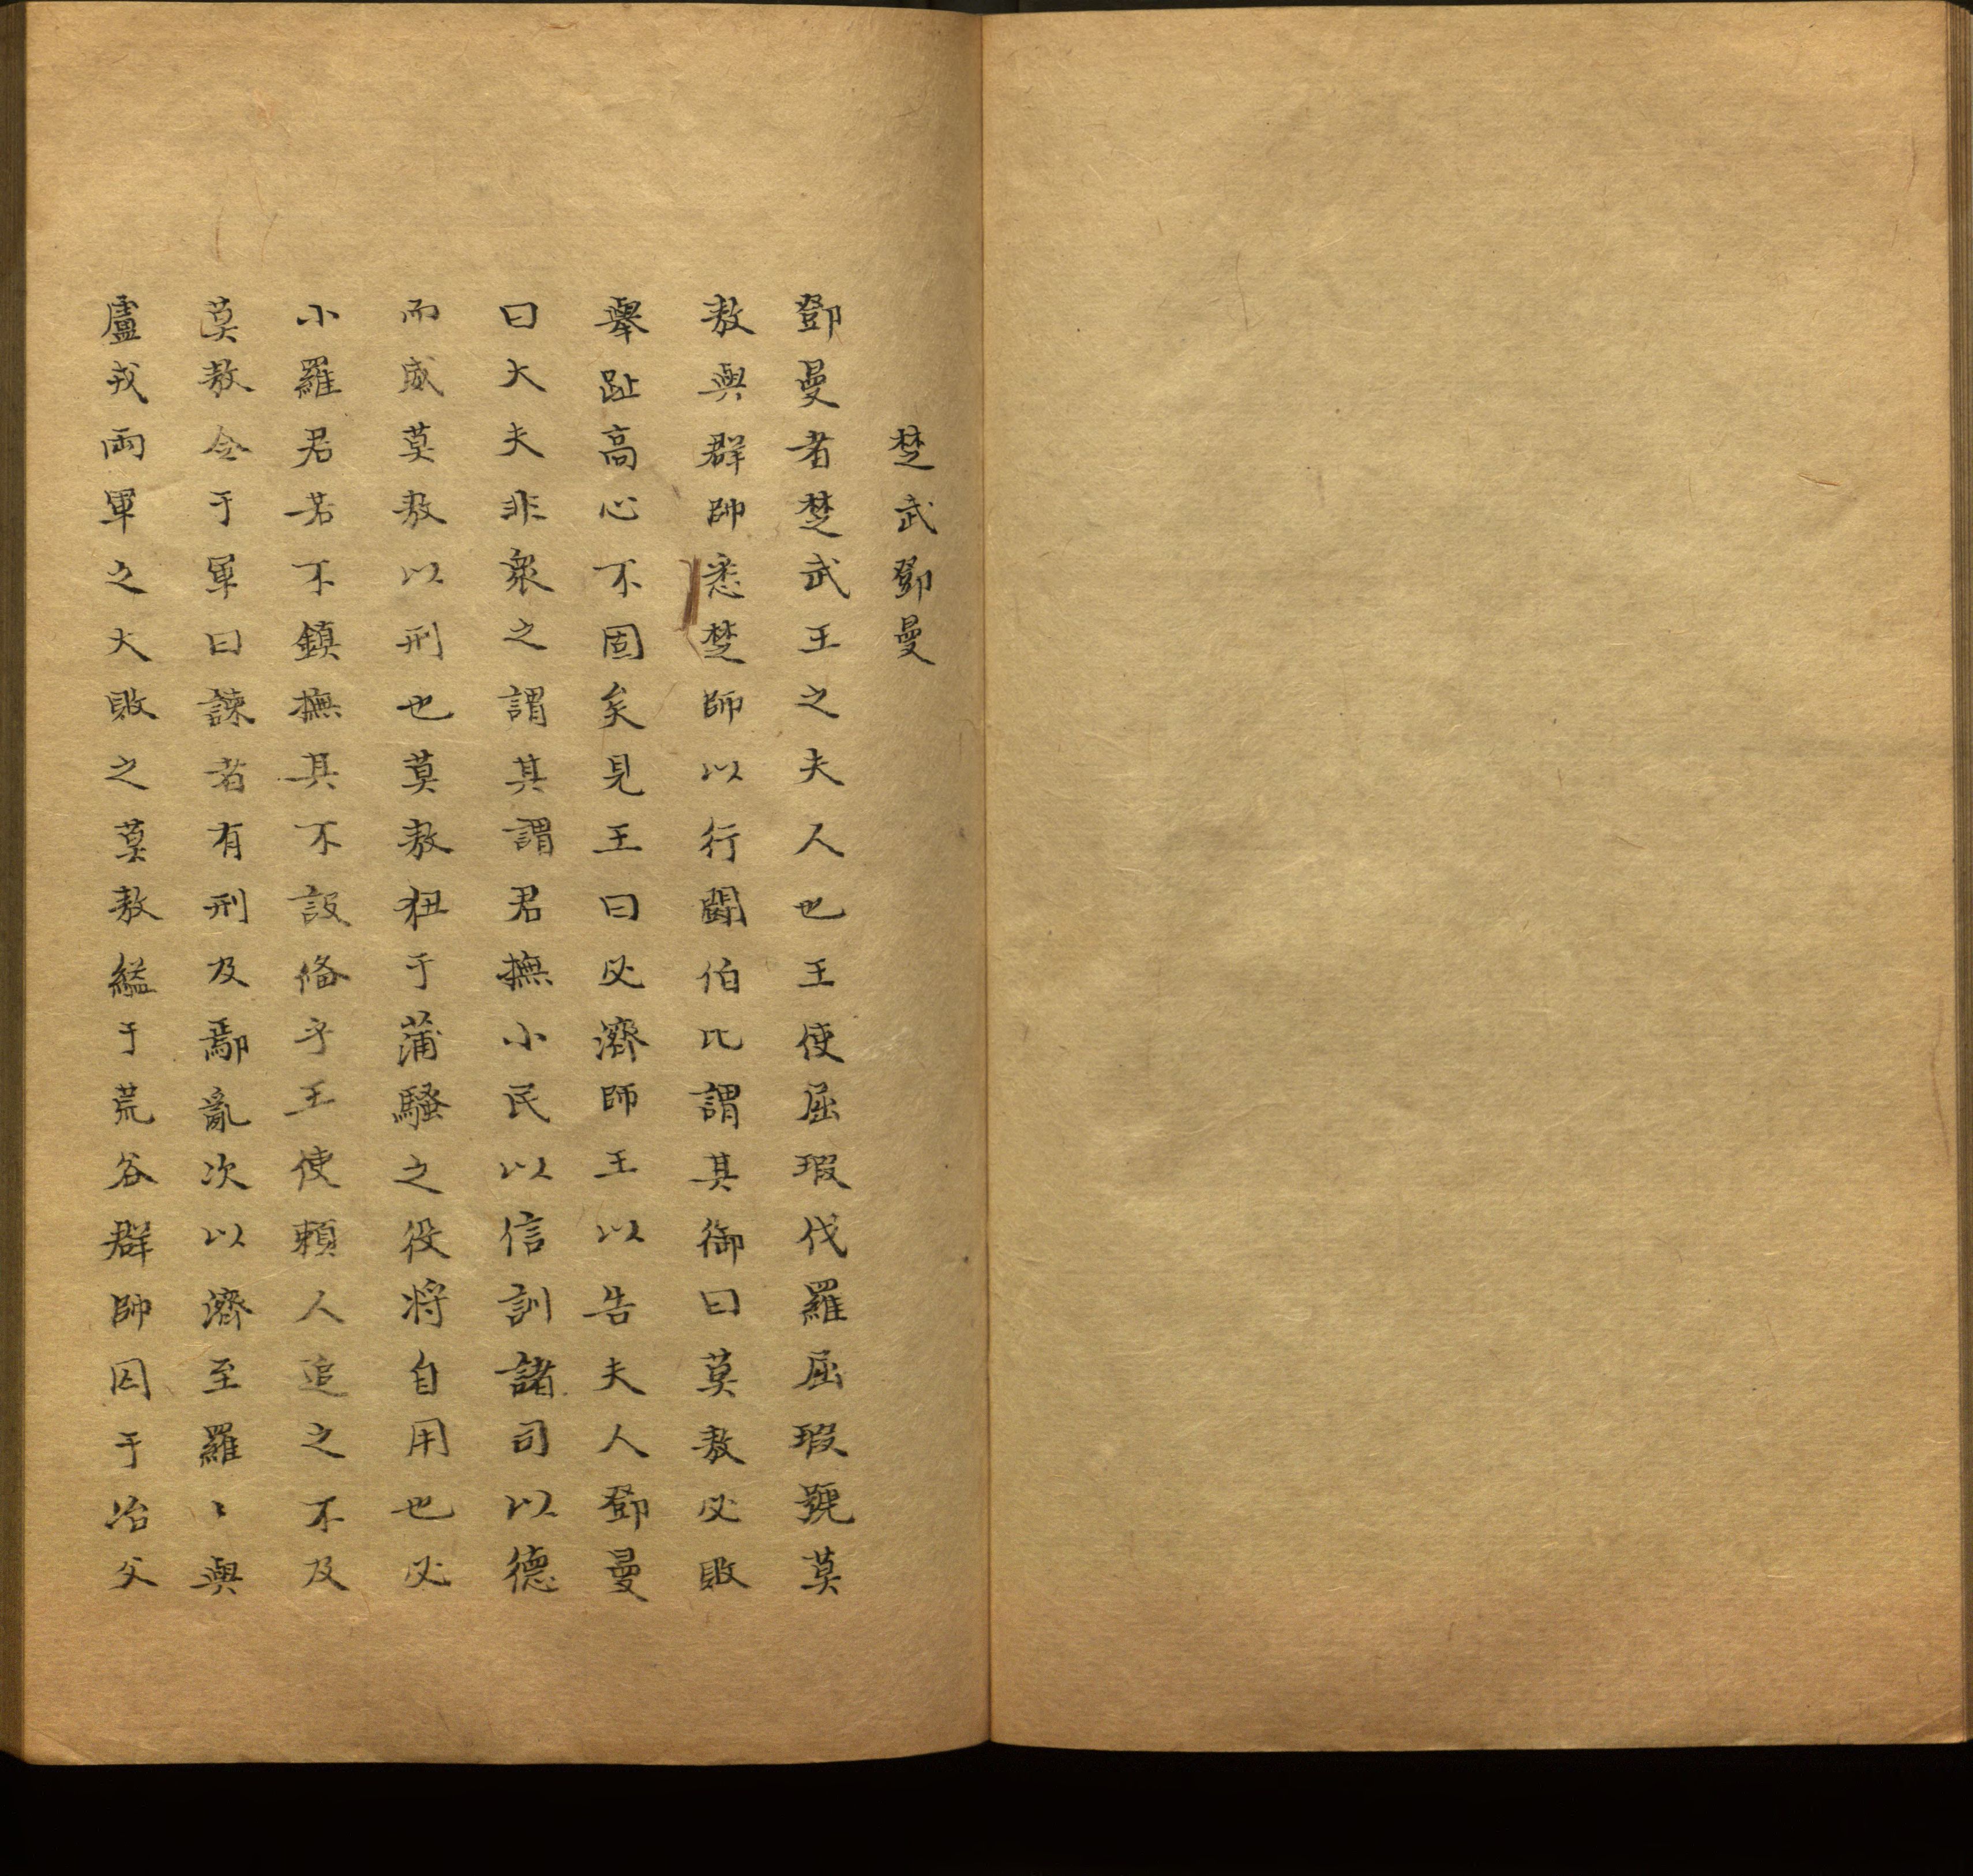 楚武鄧曼
鄧曼者楚武王之夫人也王使屈瑕伐羅屈瑕號莫
敖與群帥悉楚師以行鬭伯比謂其御曰莫敖必敗
舉趾高心不固矣見王曰必濟師王以告夫人鄧曼
曰大夫非衆之謂其謂君撫小民以信訓諸司以德
而威莫敖以刑也莫敖狃于蒲騷之役将自用也必
小羅君若不鎮撫其不設俻乎王使頼人追之不及
莫敖令于軍曰諫者有刑及鄢亂次以濟至羅〻與
盧戎兩軍之大敗之莫敖縊于荒谷群帥囚于冶父